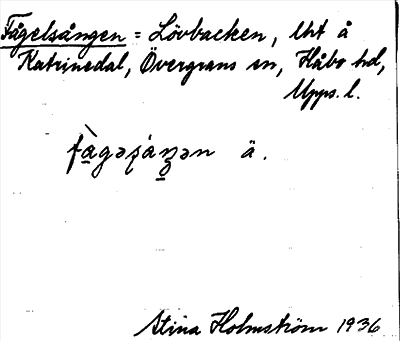 Fågelsången = Lövbacken, lht å
Katrinedal, Övergrans sn, Håbo hd,
Upps. l.
fàgəsáŋən ä.
Stina Holmström 1936